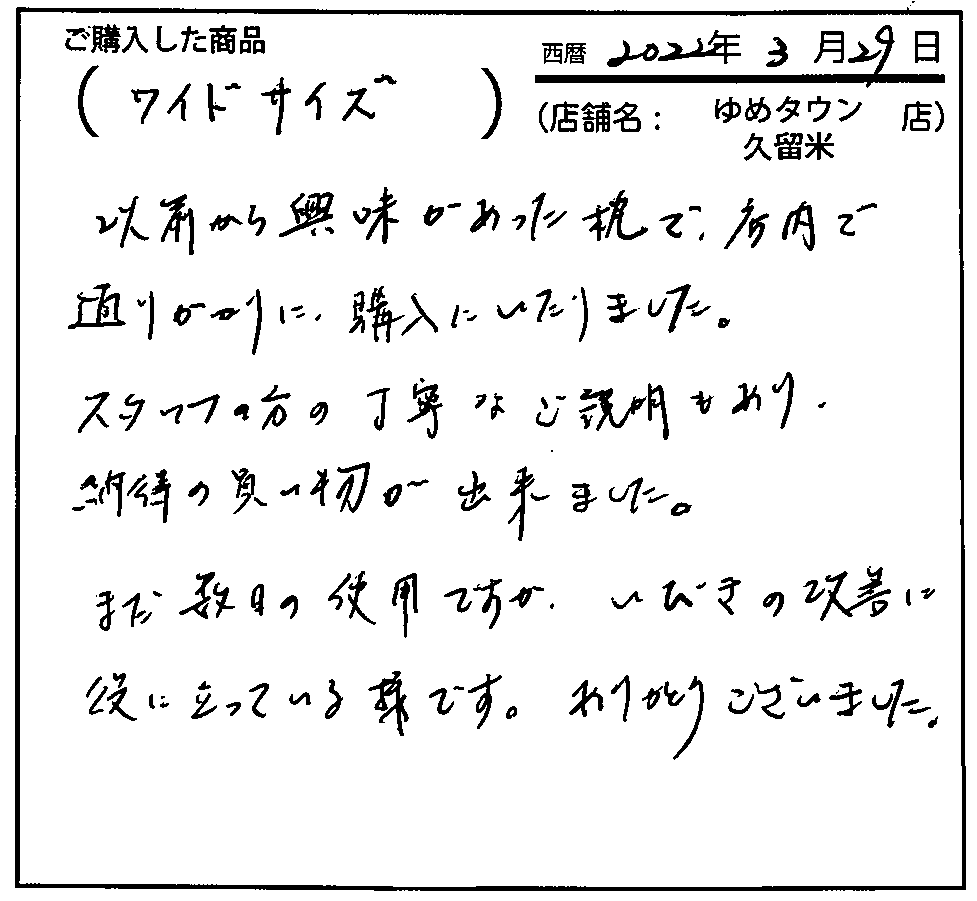 ご購入した商品
西暦 2022年 3月29日
(ワイドサイズ)
(店舗名: ゆめタウン 久留米 店)
以前から興味があった枕で、店内で
通りがかりに、購入にいたりました。
スタッフの方の丁寧なご説明もあり、
納得の買い物が出来ました。
まだ数日の使用ですが、いびきの改善に
役に立っている様です。ありがとうございました。